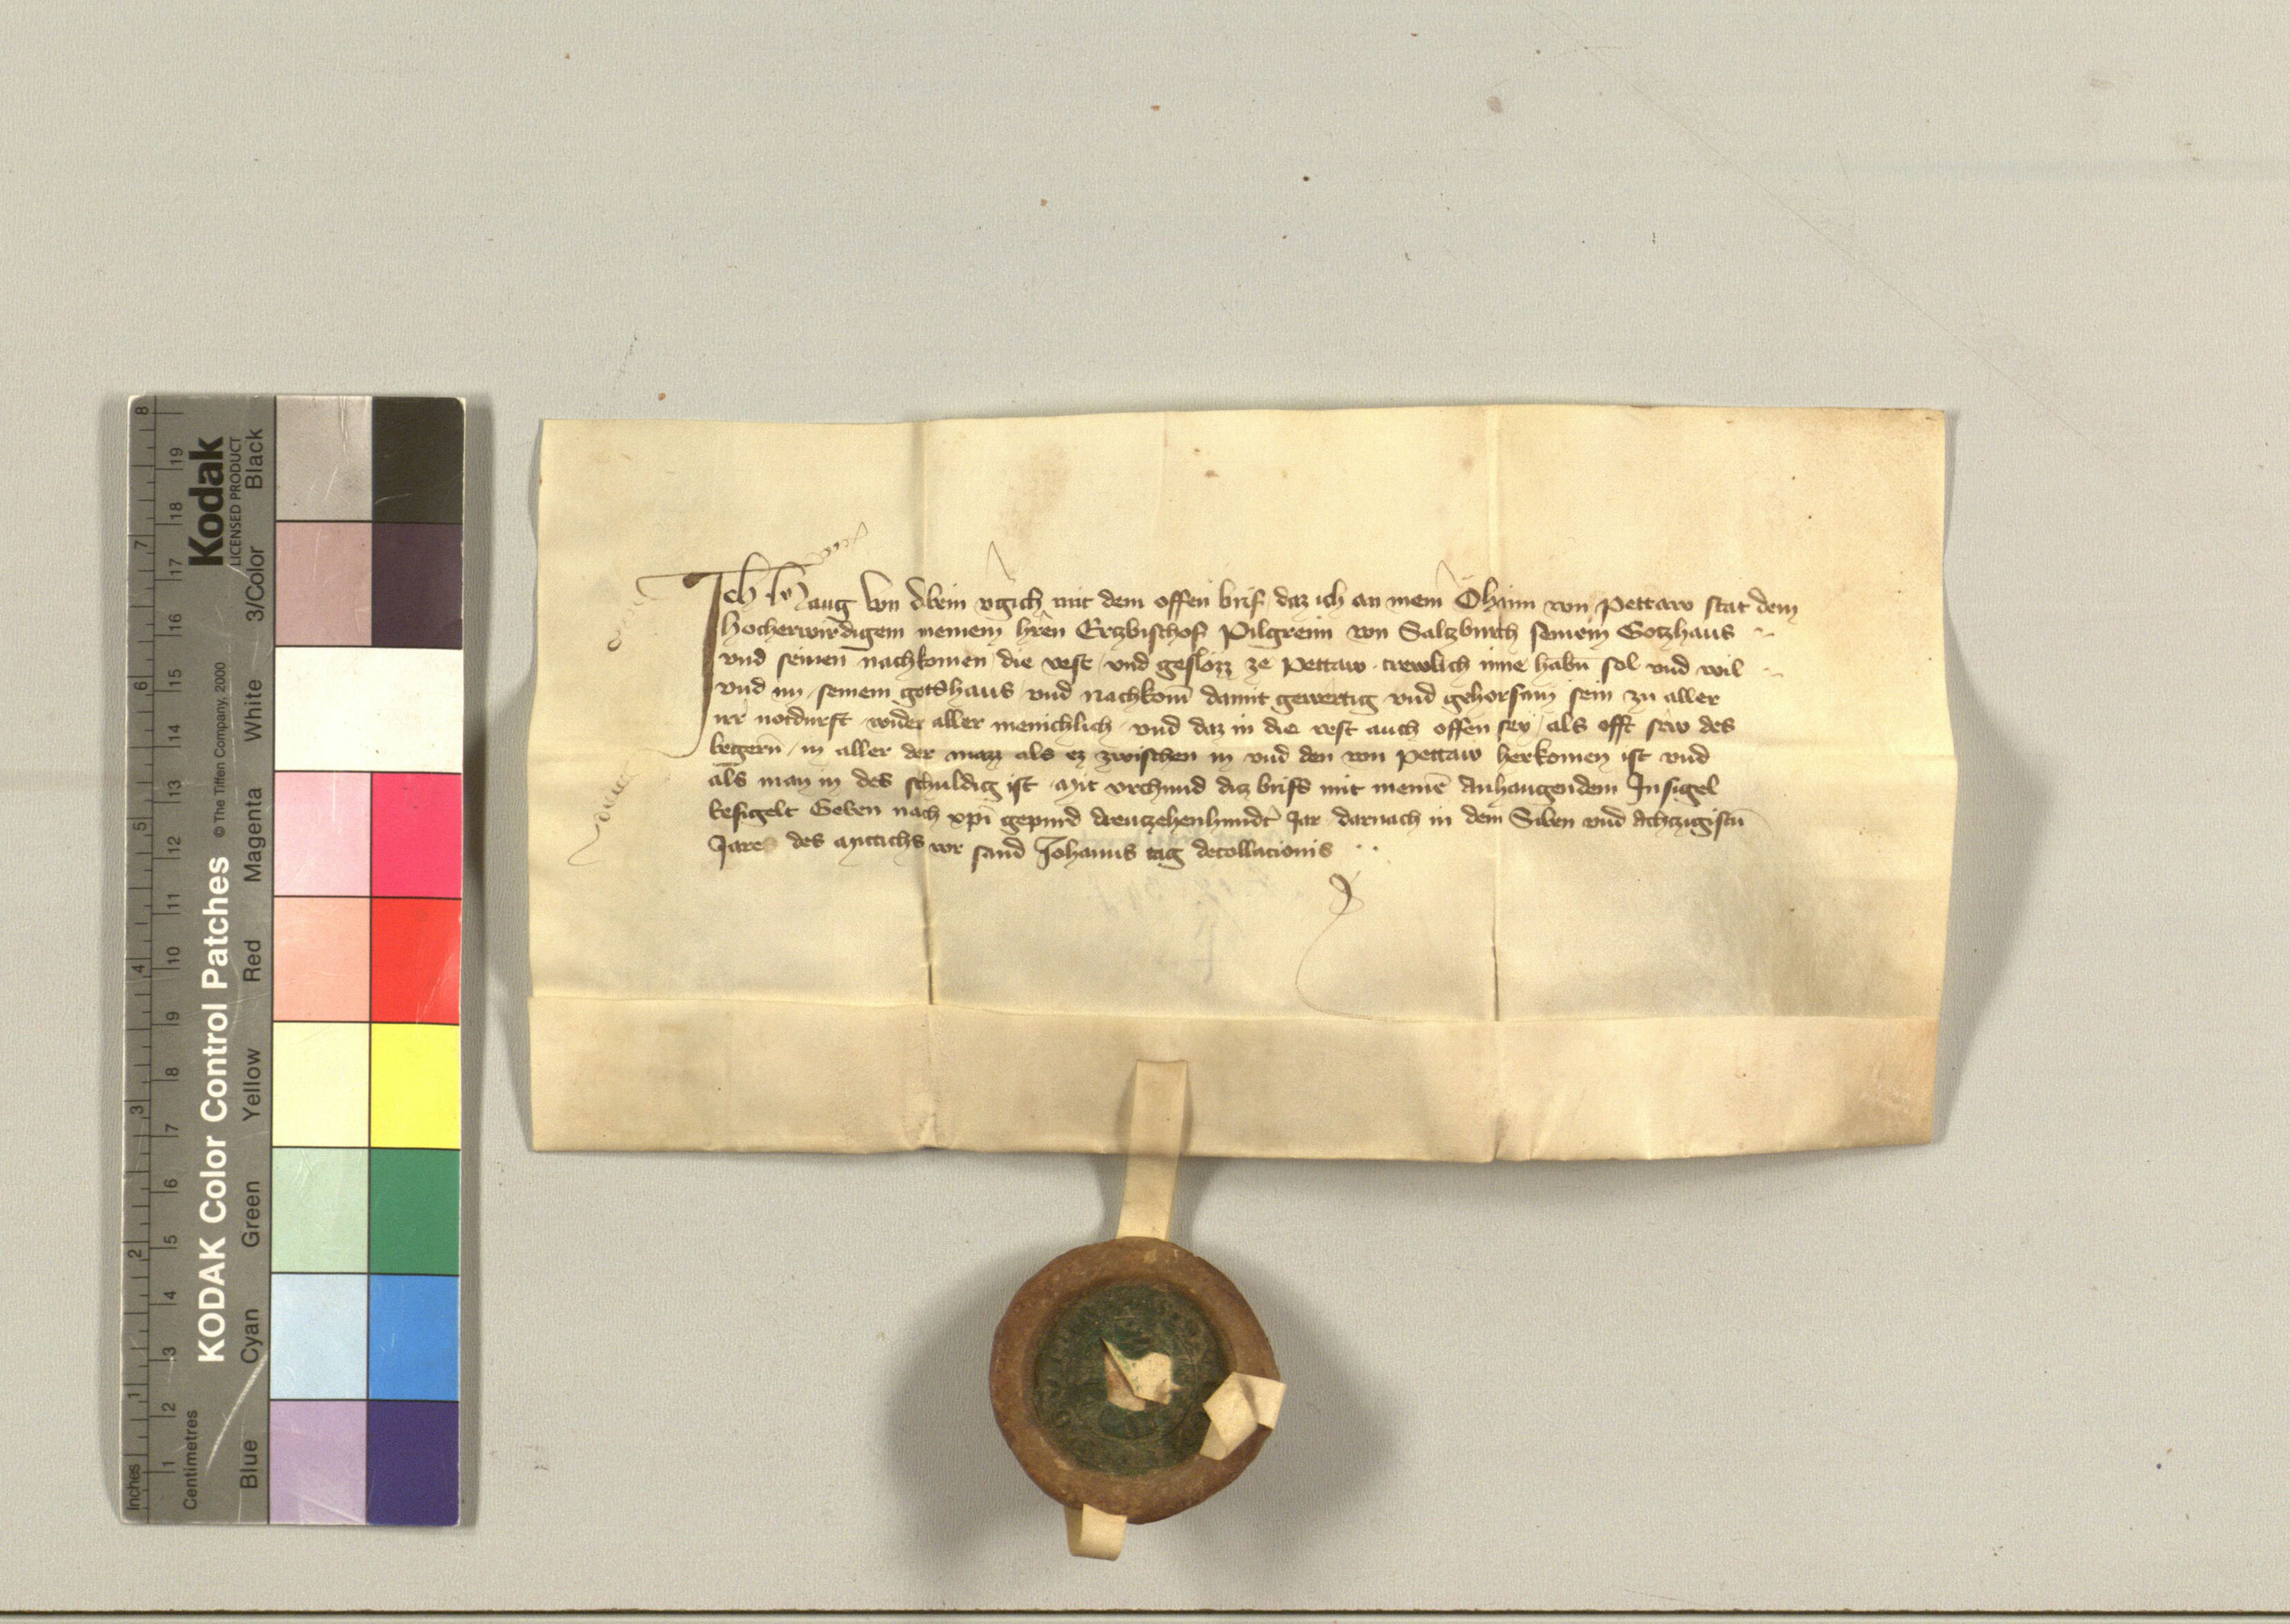 Ich Haug von Dbein vgich mit dem offen brif daz ich an mein Öhaim von Pettaw stat dem
hocherwirdigem meinem hren Ertzbischof Pilgreim von Saltzburch seinem Gotzhaus
vnd seinen nachkomen die vest vnd geslozz ze Pettaw trewlich inne habn sol vnd wil
vnd im seinem gotshaus vnd nachkom damit gewertig vnd gehorsam sein zu aller
irr notdurft wider aller menichlich vnd daz in die vest auch offen sey als offt sew des
begern in aller der mazz als ez zwischen in vnd den von Pettaw herkomen ist vnd
als man in des schuldig ist Mit vrchund diz brifs mit meinē Anhangendem Insigel
besigelt Geben nach xpi gepurd dreutzehenhundt Jar darnach in dem Siben vnd Achtzigistn
Jare des Mittichs vor sand Johanns tag decollacionis
KODAK Color Control Patches
© The Tiffen Company, 2000
Kodak
LICENSED PRODUCT
Blue Cyan Green Yellow Red Magenta White 3/Color Black
Inches 1 2 3 4 5 6 7 8
Centimetres 1 2 3 4 5 6 7 8 9 10 11 12 13 14 15 16 17 18 19